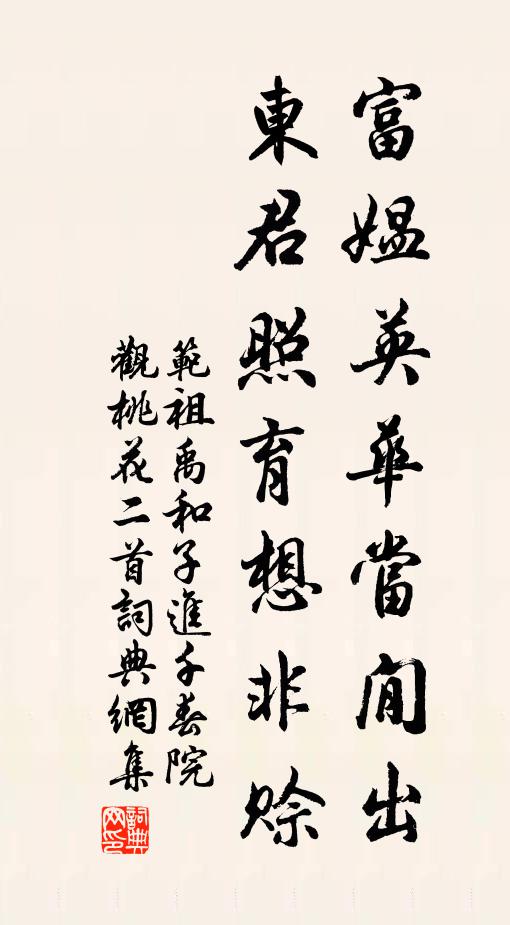 富媼英華當間出
東君照育想非賒
範祖禹和子進千春院
觀桃花二首詞典網集
詞典網印